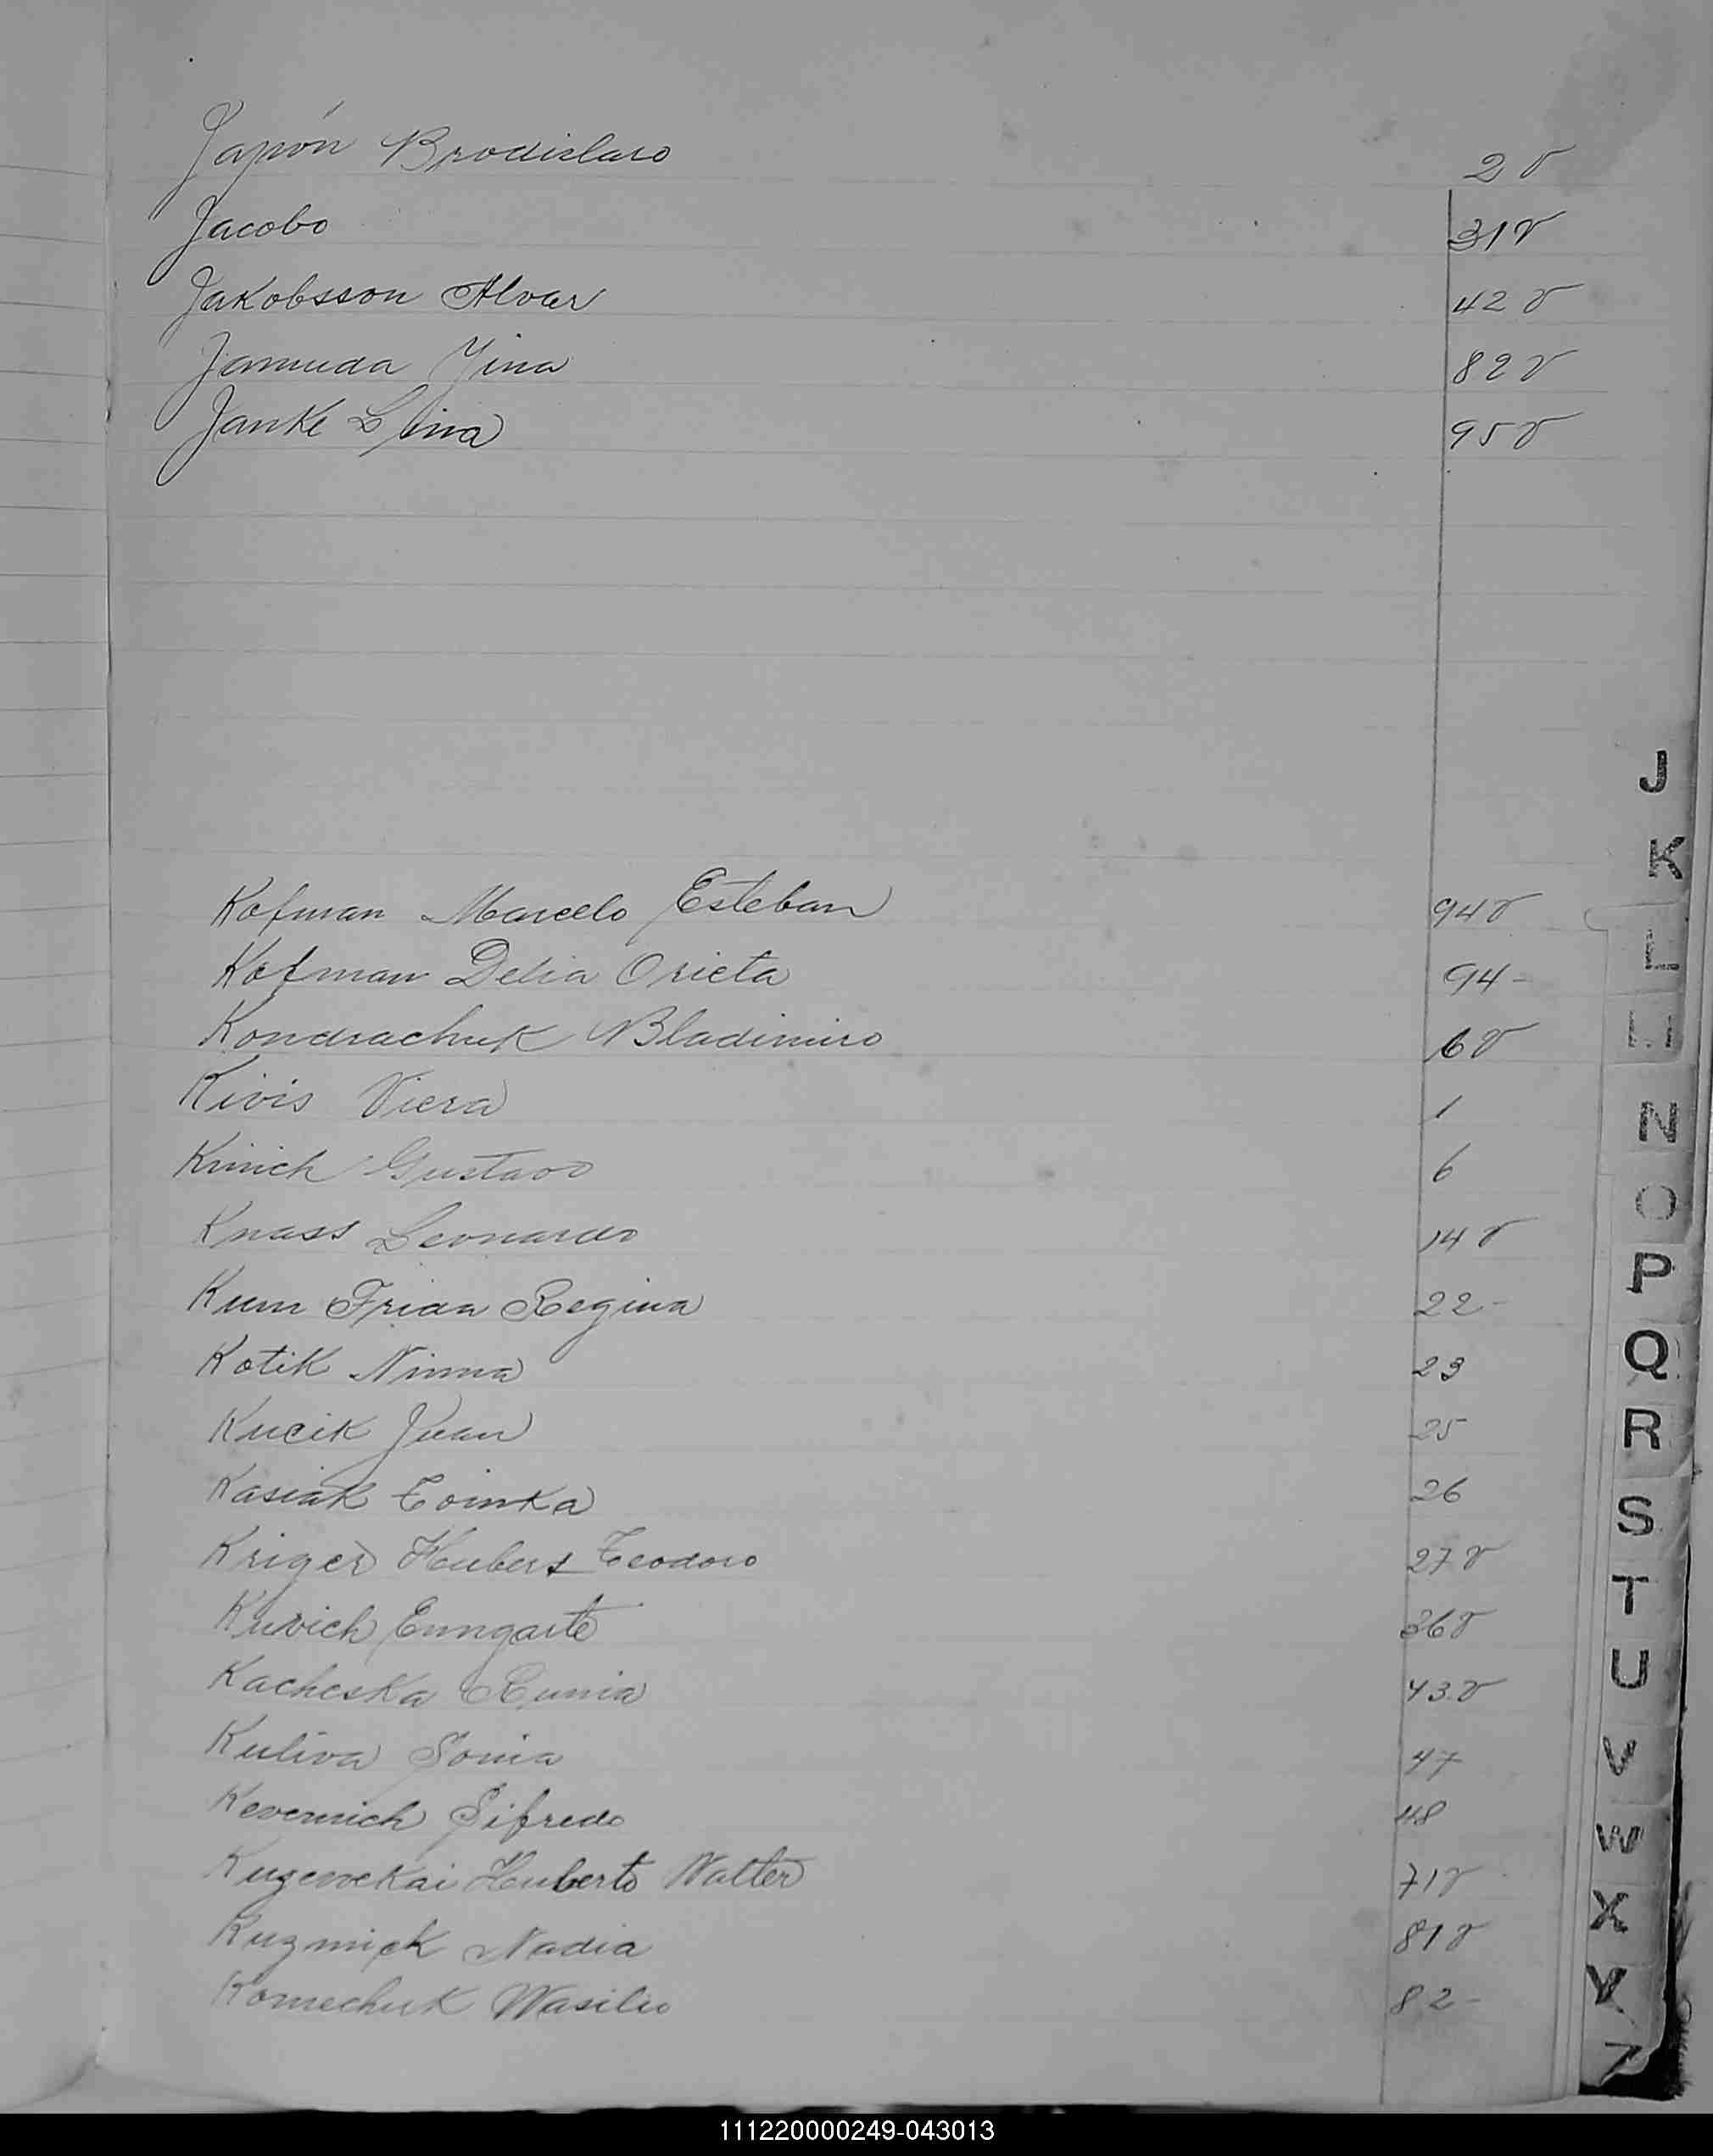 Japón Brodislavo 2 v
Jacobo 31 v
Jakobsson Alvar 42 v
Jamuda Yina 82 v
Janke Lina 95 v
Kofman Marcelo Esteban 94 v
Kofman Delia Orieta 94 -
Kondrachuk Bladimiro 6 v
Kivis Viera 1
Kinich Gustavo 6
Knass Leonardo 14 v
Kum Frida Regina 22 -
Kotik Ninna 23
Kucik Juan 25
Kasiak Toinka 26
Kriger Hubert Teodoro 27 v
Kurich Enngarte 36 v
Kacheska Runia 43 v
Kuliva Sonia 47
Kevernich Sifredo 48
Kugenekai Huberto Walter 71 v
Kuzmick Nadia 81 v
Komechuk Wasilio 82 -
J
K
L
N
O
P
Q
R
S
T
U
V
W
X
Y
Z
111220000249-043013